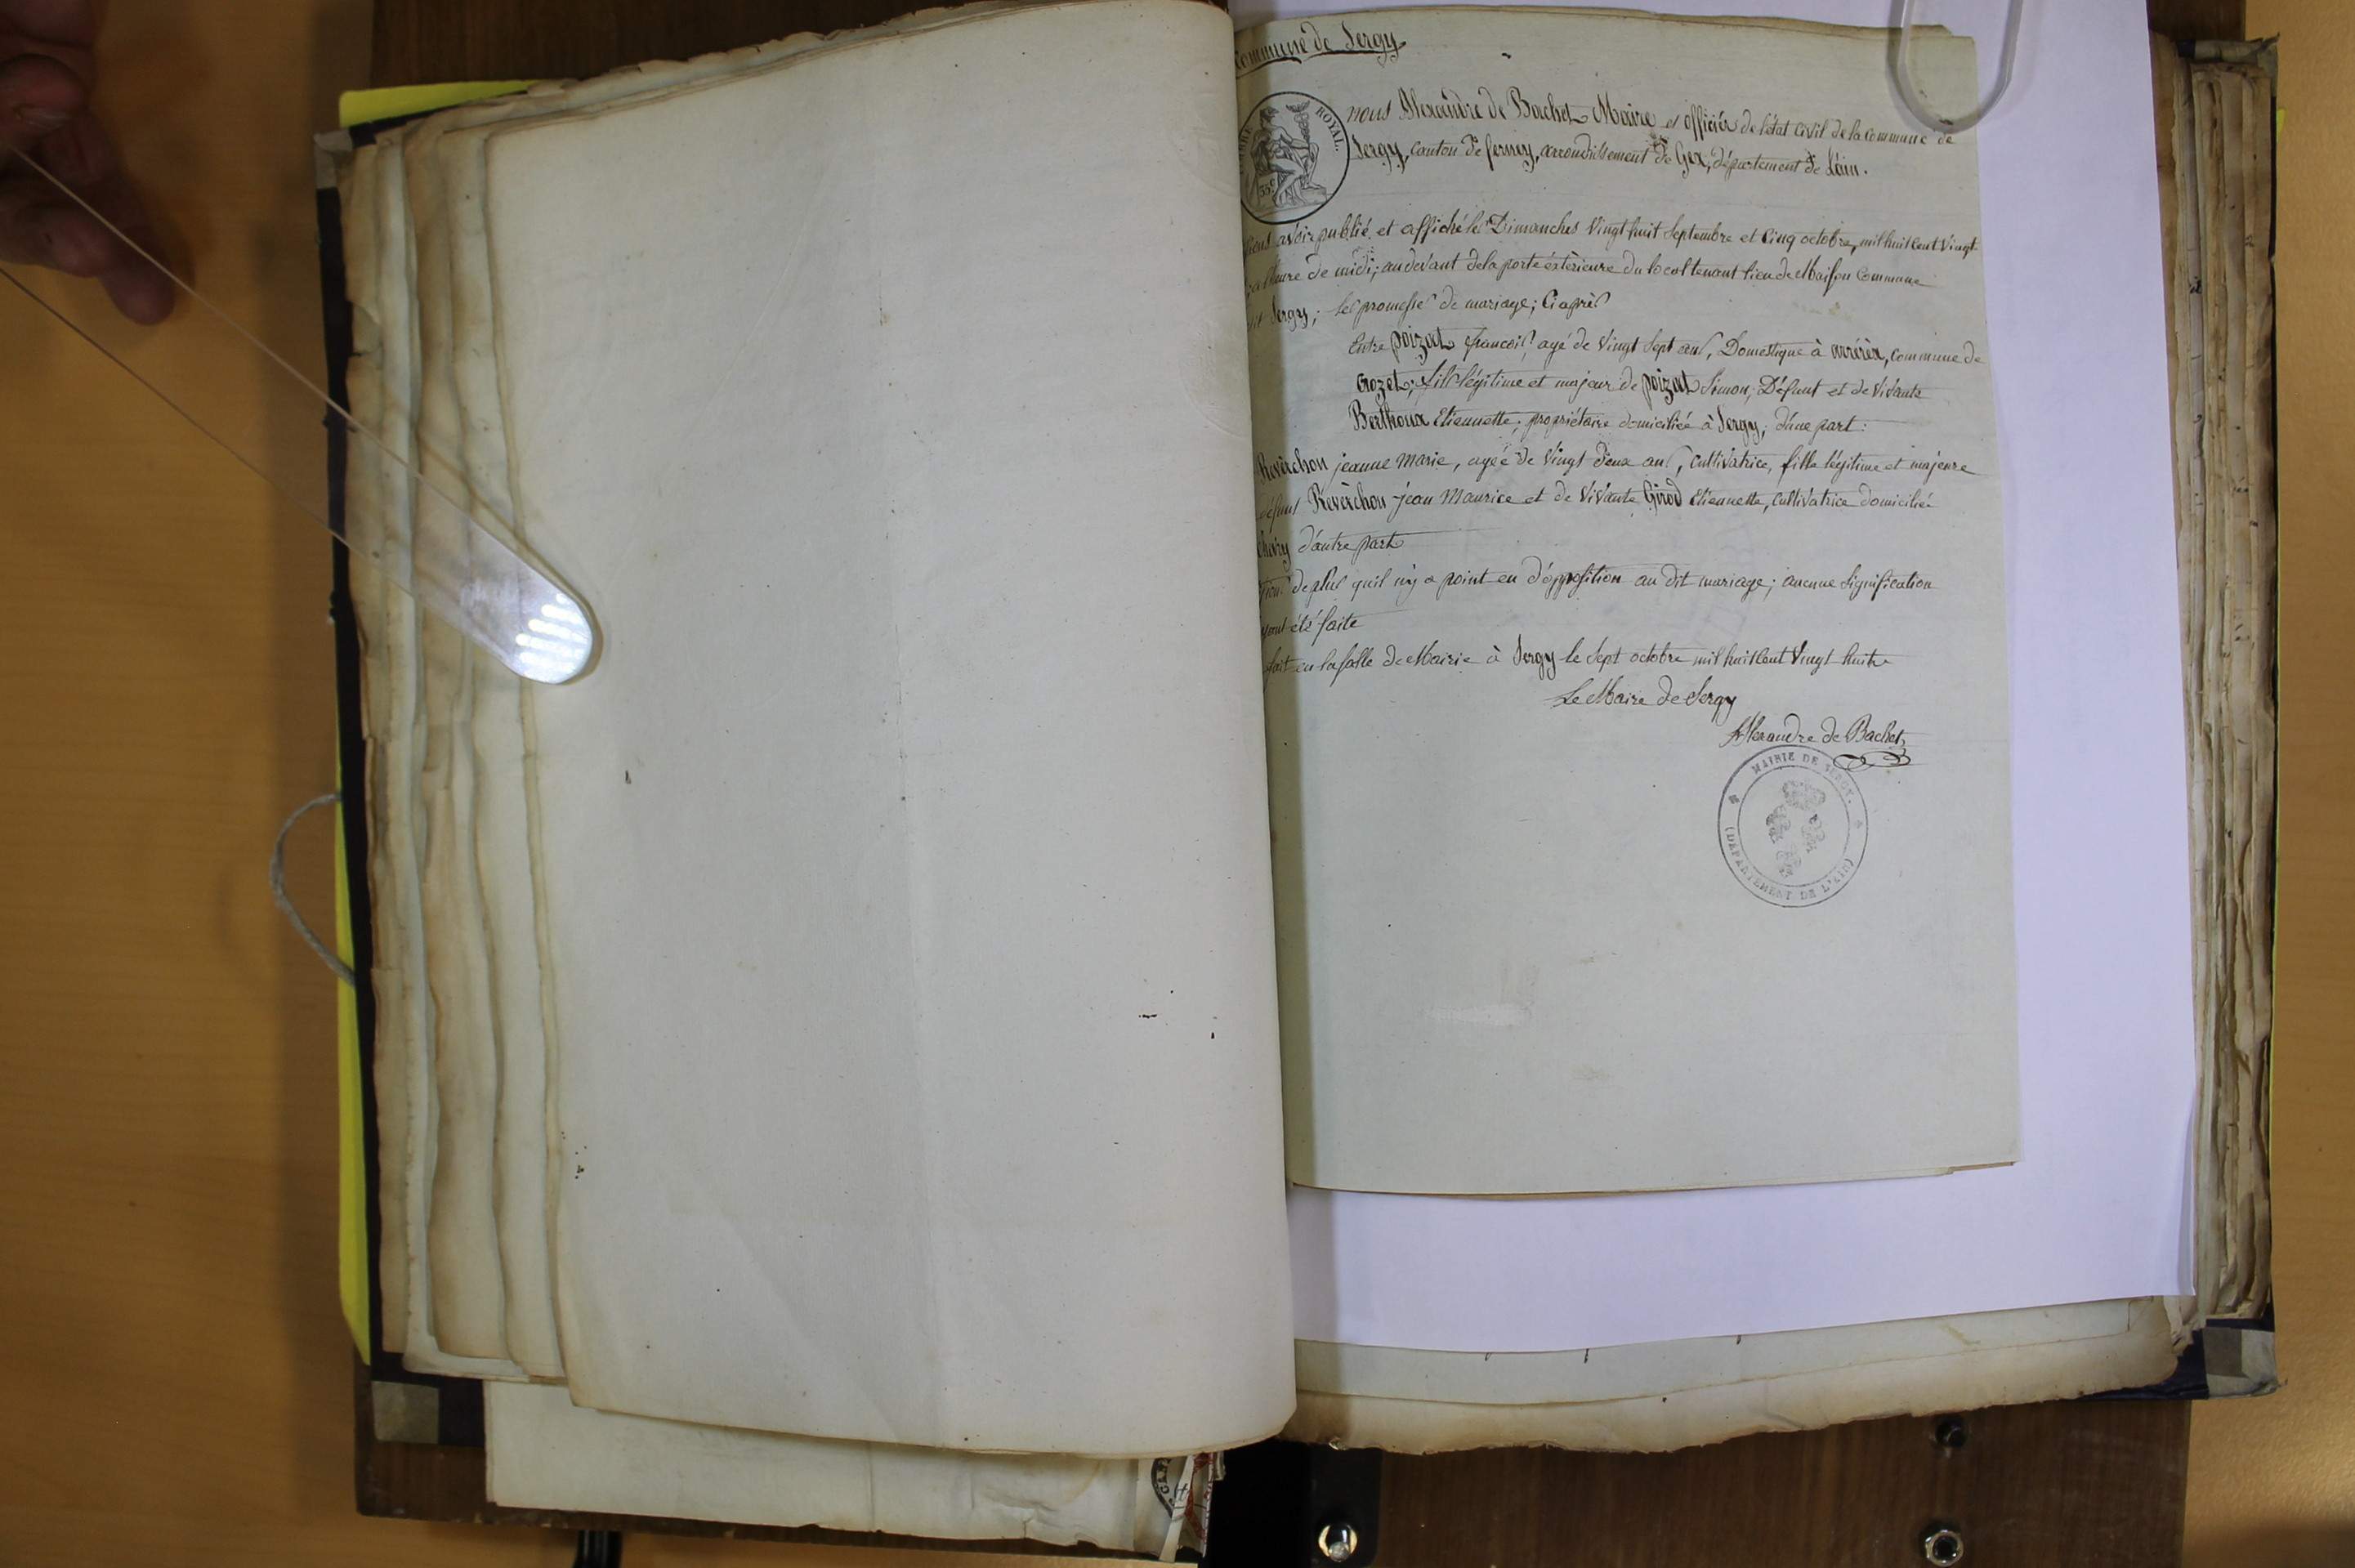 Commune de Sergy
ROYAL.
35c
nous Alexandre de Bachet Maire et officier de l'état Civil de la Commune de
Sergy, canton de ferney, arrondissement de Gex, département de L'ain.
avoir publié et affiché les Dimanches Vingt huit Septembre et Cinq octobre, mil huit Cent Vingt
heure de midi; au devant de la porte éxtèrieure du local tenant lieu de Maison Commune
Sergy; les promesses de mariage; Ci après
Entre poizat francois, agé de Vingt Sept ans, Domestique à arrérèx, commune de
crozet; fils légitime et majeur de poizat Simon, Défunt et de Vivante
Berthoux Etiennette; propriétaire domiciliée à Sergy; d'une part:
Reverchon jeanne Marie, agée de Vingt deux ans, Cultivatrice, fille légitime et majeure
défunt Reverchon jean Maurice et de Vivante Girod Etiennette, Cultivatrice domiciliée
d'autre part
de plus qu'il n'y a point eu d'opposition au dit mariage; aucune Signification
été faite
fait en la salle de Mairie à Sergy le Sept octobre mil huit Cent Vingt huit
Le Maire de Sergy
Alexandre de Bachet
MAIRIE DE SERGY.
(DEPARTEMENT DE L'AIN)